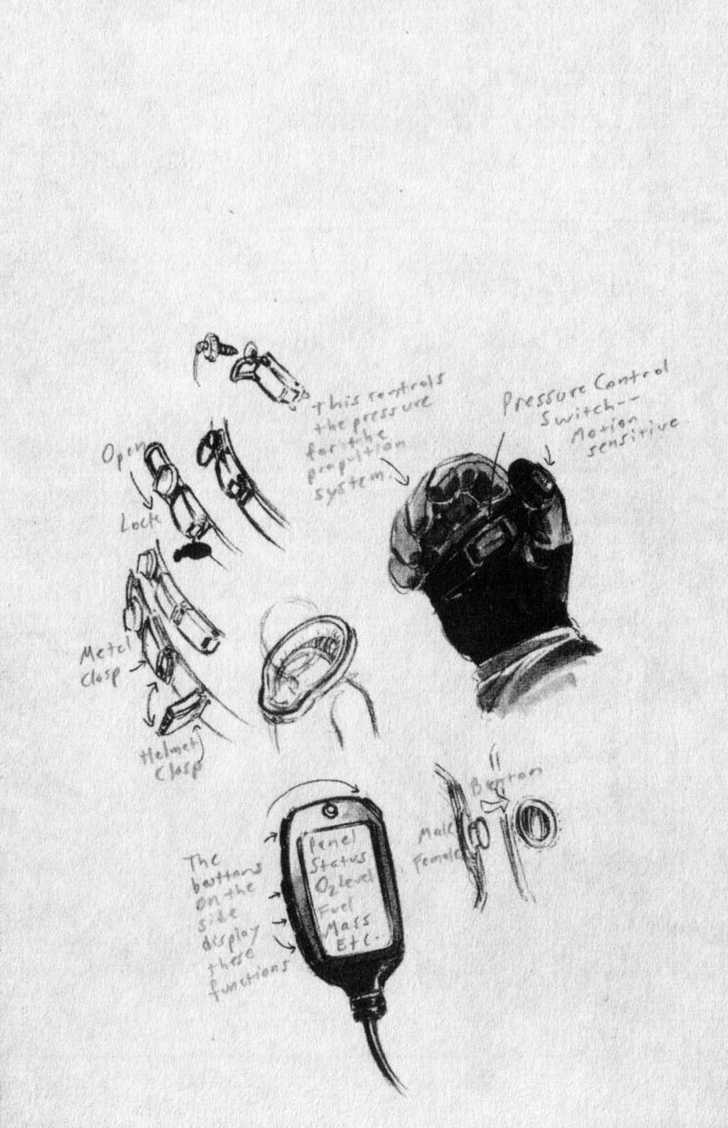 This controls
the pressure
for the
propultion
system.
Pressure Control
Switch--
Motion
sensitive.
Open
Lock
Metal
Clasp
Helmet
Clasp
Button
Male
Female
The
buttons
on the
side
display
these
functions
Panel
Status
O2 Level
Fuel
Mass
Etc.